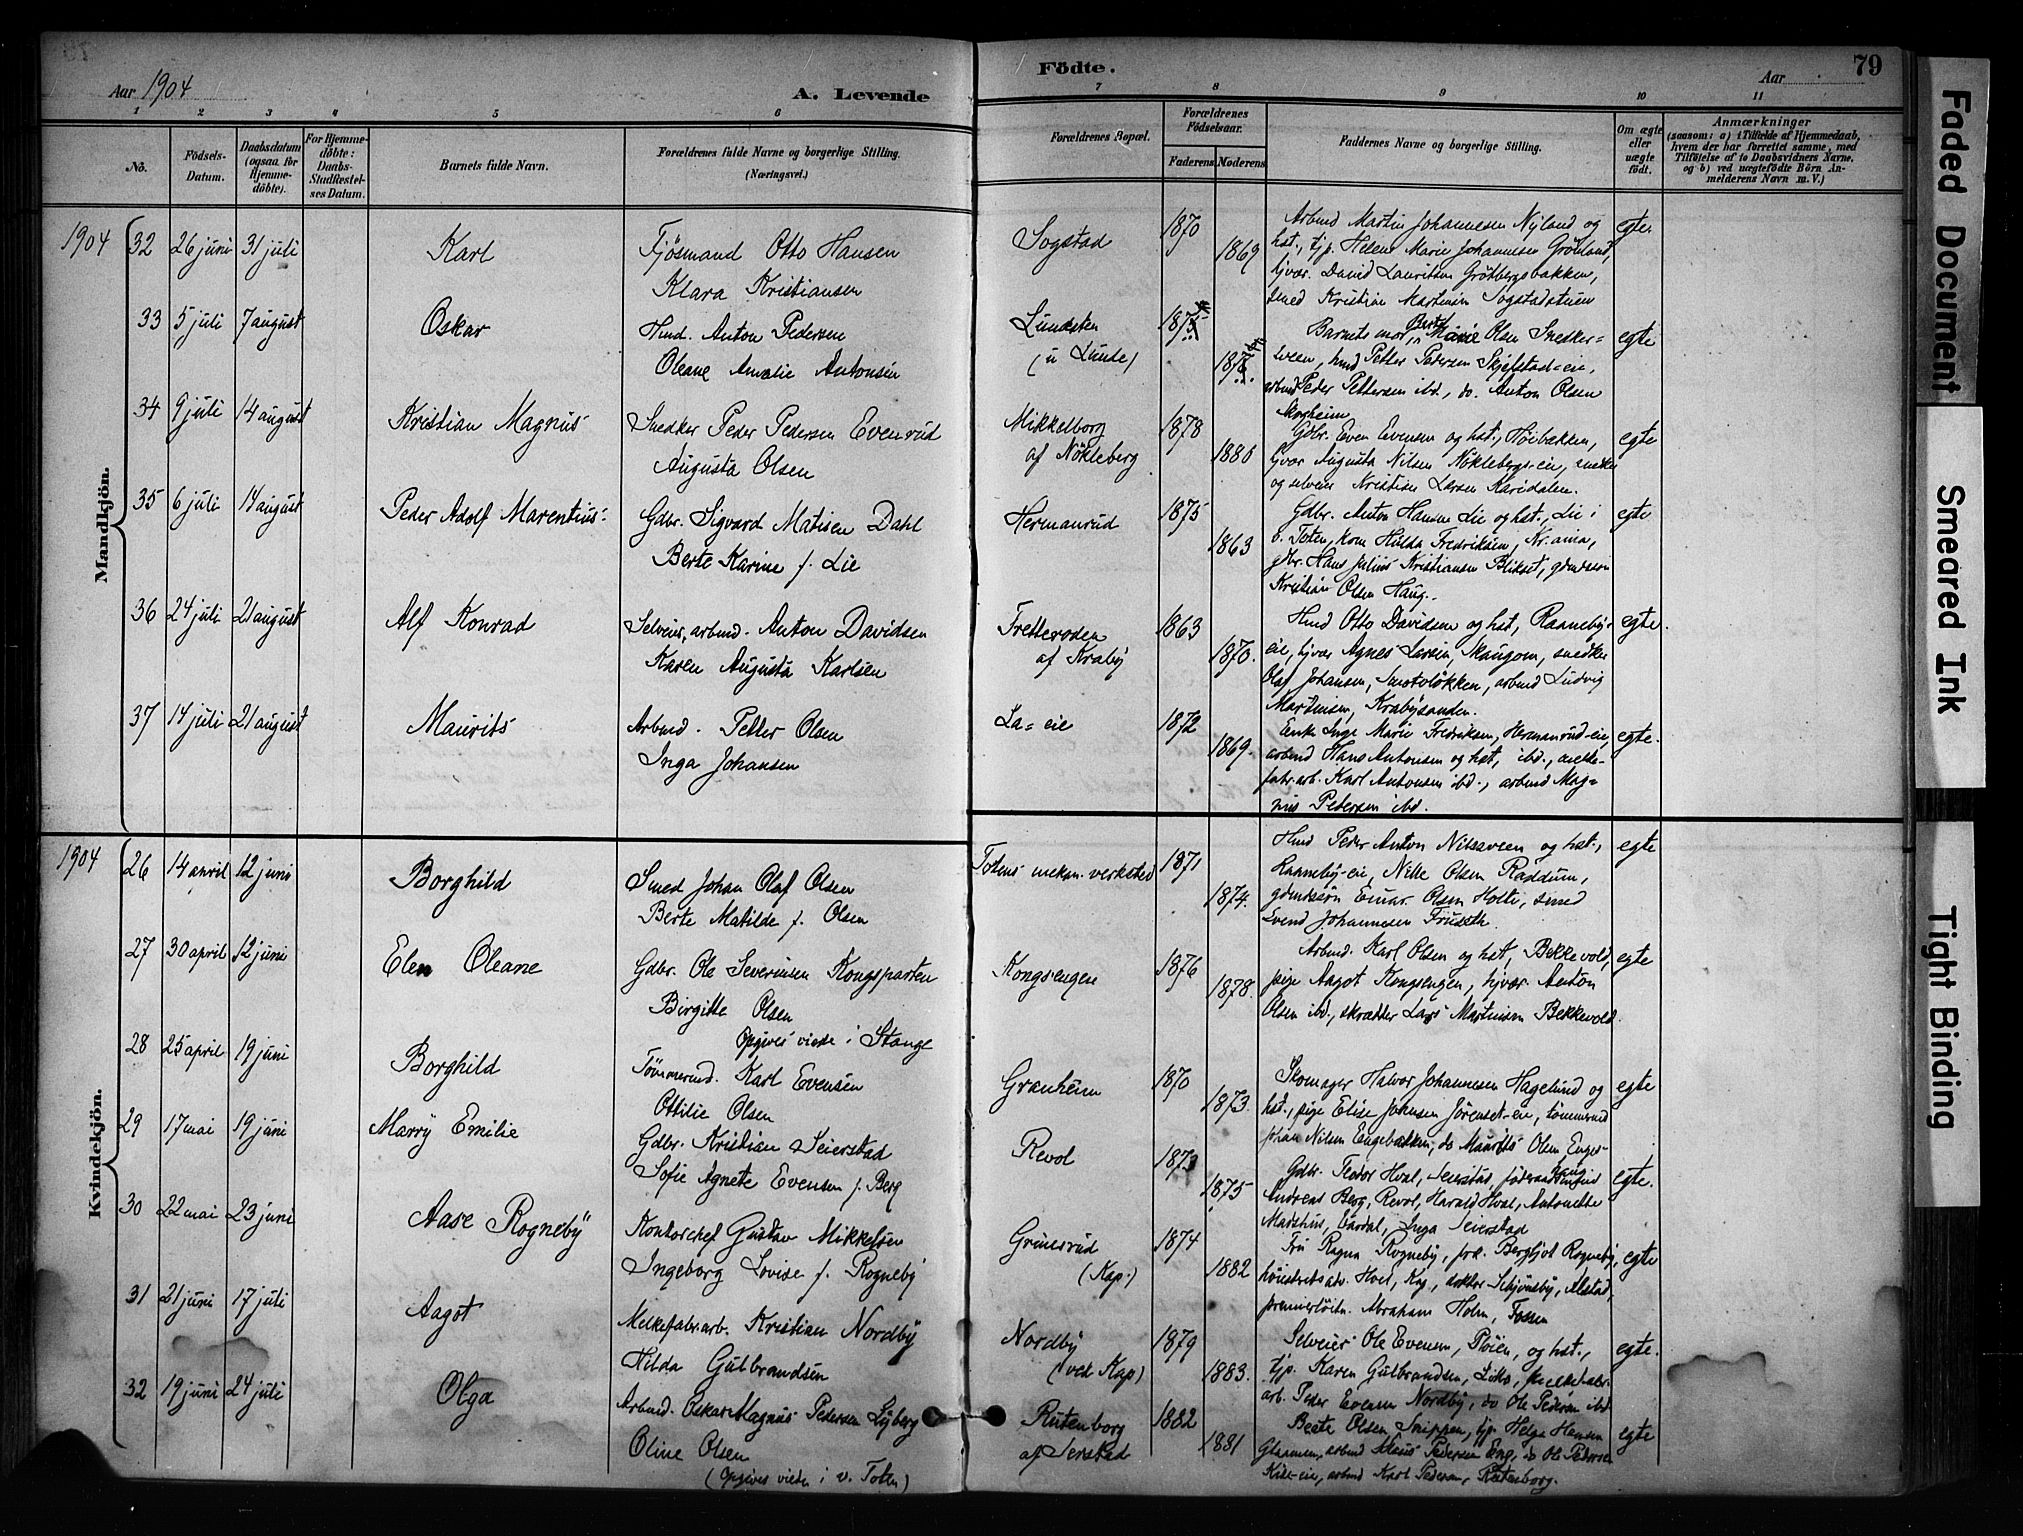 Aar 1904
A. Levende
Födte.
Aar
79
1 2 3 4 5 6 7 8 9 10 11
No.
Födsels-
Datum.
Daabsdatum
(ogsaa for
Hjemme-
döbte).
For Hjemme-
döbte:
Daabs-
Stadfæstel-
ses Datum.
Barnets fulde Navn.
Forældrenes fulde Navne og borgerlige Stilling.
(Næringsvei.)
Forældrenes Bopæl.
Forældrenes
Födselsaar.
Faderens
Moderens
Faddernes Navne og borgerlige Stilling.
Om ægte
eller
uægte
födt.
Anmærkninger
(saasom: a) i Tilfælde af Hjemmedaab,
hvem der har forrettet samme, med
Tilföielse af to Daabsvidners Navne,
og b) ved uægtefödte Börn An-
melderens Navn m. V.)
Mandkjön.
1904 32 26 juni 31 juli Karl
Fjösmand Otto Hansen
Klara Kristiansen
Sogstad 1870 1869
Arbmd Martin Johannesen Nyland og
hst., tjp. Helene Marie Johannesen Grönland,
tjvær. David Lauritsen Grötbergsbakken,
smed Kristian Martinsen Sogstadstuen
egte
33 5 juli 7 august Oskar
Hmd. Anton Pedersen
Oleane Amalie Antonsen
Lundsten
(u Lunde)
Barnets mor, Berte Marie Olsen Snedker-
sveen, hmd Petter Pedersen Skjelstad-eie,
arbmd Peder Pettersen ibd., do. Anton Olsen
Skogheim
egte
34 9 juli 14 august Kristian Magnus
Snedker Peder Pedersen Evenrud
Augusta Olsen
Mikkelborg
af Nökleberg
1878
Gdbr. Even Evensen og hst., Höibakken,
tjvær Augusta Nilsen Nöklebergs-eie, snedker
og selveier Kristian Larsen Karidalen.
egte
35 6 juli 14 august Peder Adolf Marentius
Gdbr. Sigvard Matisen Dahl
Berte Karine f. Lie
Hermanrud 1875 1863
Gdbr. Anton Hansen Lie og hst., Lie i
ö. Toten, kone Hulda Fredriksen,
gbr. Hans Julius Kristiansen Blikset, gdmdssön
Kristian Olsen Haug.
egte
36 24 juli 21 august Alf Konrad
Selveier, arbmd. Anton Davidsen
Karen Augusta Karlsen
Fretteroden
af Kraby
1863 1870.
Hmd Otto Davidsen og hst, Raaneby-
eie, tjvær Agnes Larsen, Skaugom, snedker
Olaf Johansen, Smotvlökken, arbmd Ludvig
Martinsen, Krabysanden.
egte.
37 14 juli 21 august Maurits
Arbmd. Petter Olsen
Inga Johansen
La-eie 1872 1869.
Enke Inge Marie Fredriksen, Hermanrud-eie,
arbmd Hans Antonsen og hst, ibd., melke-
fabr.arb. Karl Antonsen ibd., arbmd Mag-
nus Pedersen ibd.
egte.
Kvindekjön.
1904 26 14 april 12 juni Borghild
Smed Johan Olaf Olsen
Berte Matilde f. Olsen
Totens mekan. verksted 1871 1874.
Hmd Peder Anton Nilssveen og hst.,
Raaneby-eie, Nille Olsen Raddum,
gdmdssön Einar Olsen Holte, smed
Evend Johannesen Fruseth.
egte
27 30 april 12 juni Elen Oleane
Gdbr. Ole Severinsen Kongsparten
Birgitte Olsen
Opgives viede i Stange
Kongsengen 1876 1878.
Arbmd. Karl Olsen og hst, Bekkevold,
pige Aagot Kongsengen, tjvær. Anton
Olsen ibd., skrædder Lars Martinsen Bekkevold.
egte
28 25 april 19 juni Borghild
Tömmermd. Karl Evensen
Ottilie Olsen
Granheim 1870 1873.
Skomager Halvor Johannesen Hagelund og
hst., pige Elise Johnsen Jörenset-eie, tömmermd
Johan Nilsen Engebakken, do Maurits Olsen Enges-
haug
egte
29 17 mai 19 juni Marry Emilie
Gdbr. Kristian Seierstad
Sofie Agnete Evensen f. Berg
Revol 1873 1875
Gdbr. Teodor Hval, Seierstad, föderaadsmand
Andreas Berg, Revol, Harald Hval, Antonette
Matshus, Inga Seierstad
egte.
30 22 mai 23 juni Aase Rogneby
Kontorchef Gustav Mikkelsen
Ingeborg Lovise f. Rogneby
Grimsrud
(Kap.)
1874 1882
Fru Ragna Rogneby, frk. Bergljot Rogneby,
höiestretsadv. Hoel, Kap, doktor Schjönsby, Alstad,
premierlöitn. Abraham Holm, Fossen
egte
31 21 juni 17 juli Aagot
Melkefabr.arb. Kristian Nordby
Hilda Gulbrandsen
Nordby
(ved Kap)
1879 1883.
Selveier Ole Evensen, Plöien, og hst.,
tjp. Karen Gulbrandsen, melkefabr.
arb. Peder Evensen Nordby, do Ole Pedersen ibd
egte.
32 19 juni 24 juli Olga
Arbmd. Oskar Magnus Pedersen Lyberg
Oline Olsen
(Opgives viede i v. Toten)
Rutenborg
af Seirstad
1882 1881
Beate Olsen Snippen, tjp Helga Hansen
Glaamen, arbmd Klaus Pedersen Eng, do Ole Pedersen
arbmd Karl Pedersen, Rutenborg.
egte
Faded Document
Smeared Ink
Tight Binding